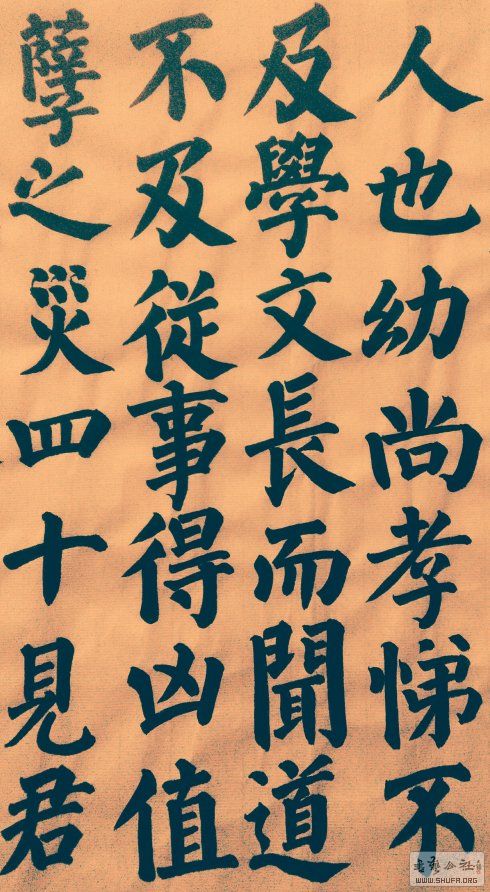 人也幼尚孝悌不
及學文長而聞道
不及從事得凶值
孽之災四十見君
書藝公社
WWW.SHUFA.ORG